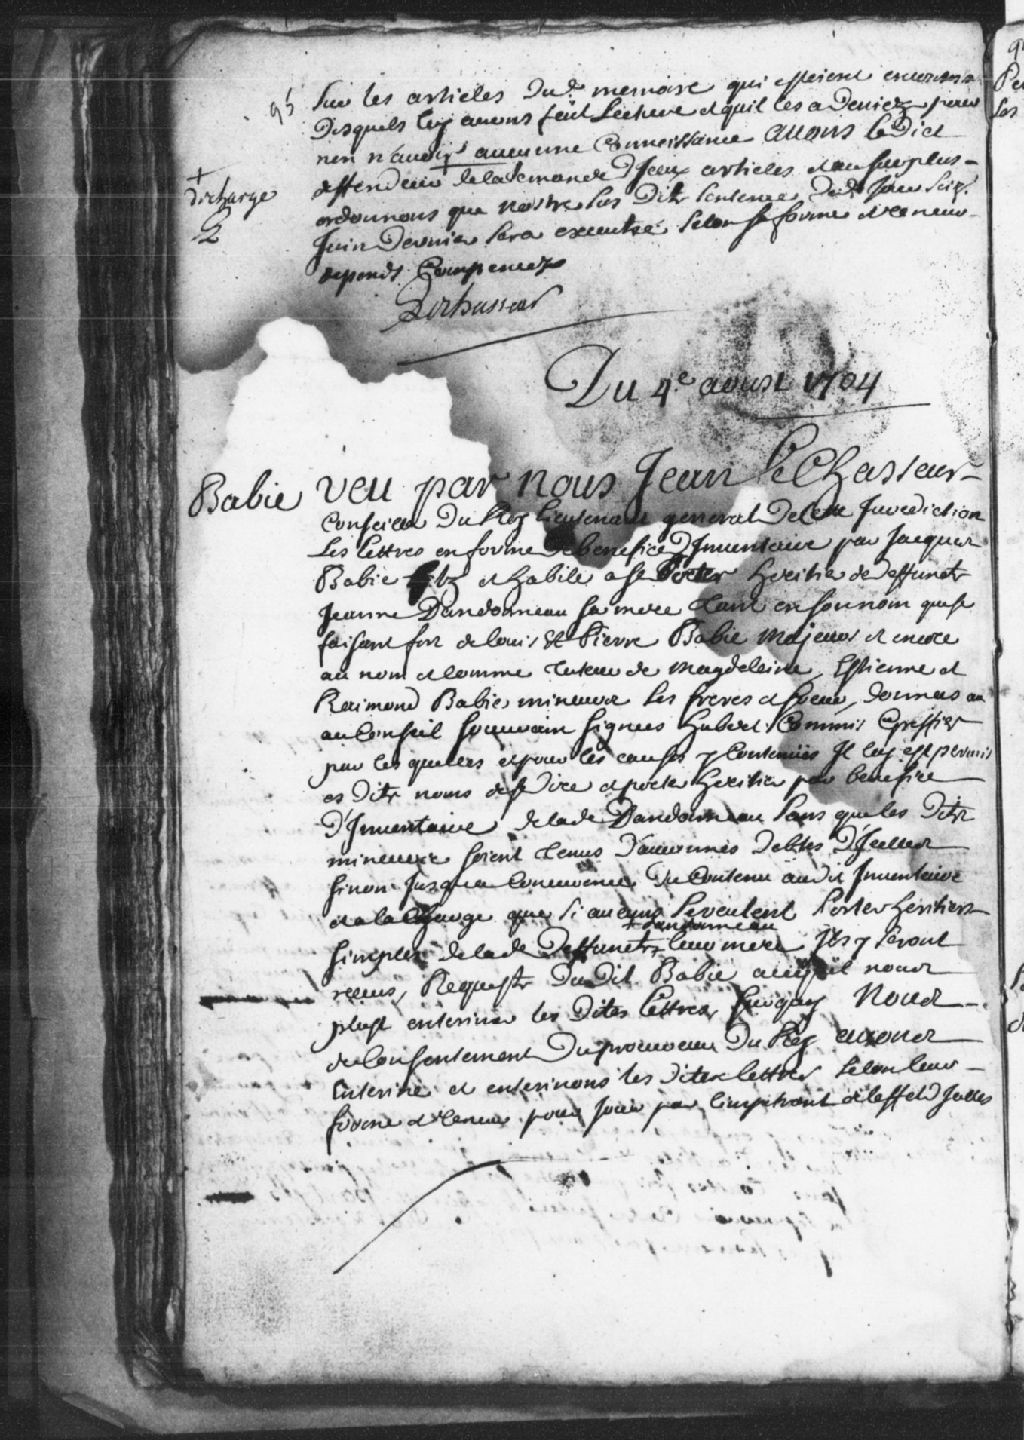 95
Sur les articles Dud. memoire qui estoient
Desquels luy avons fait Lecture et quil les a deniez pour
nen n'avoir aucunne Connoissance avons le Dict
deffendeur de la demande D'Jceux articles et au surplus
ordonnons que nostre sus Ditte Sentence Dud. Jour
Juin Dernier sera executté Selon sa forme et teneur
depends Compencez
+
descharge
2
Lechasseur
Du 4e aoust 1704
Babie
Veu par nous Jean Le Chasseur
Conseiller Du Roy lieutenant general De cette Jurediction
Les lettres en forme de benefice D'Jnventaire par Jacques
Babie et habile a se Porter heritier de deffuncte
Jeanne Dandonneau sa mere tant en son nom que se
faisant fort de louis et Pierre Babie Majeurs et encore
au nom et comme tuteur de Magdeleine, Estienne et
Raimond Babie mineurs ses freres et soeur, donnees au
au Conseil souverain signees hubert Commis Greffier
par lesquelles et pour les causes y Contenues Jl luy est permis
es Ditz noms de se dire et porter heritier par benefice
D'Jnventaire de lade Dandonneau Sans que les Ditz
mineurs soient tenus D'aucunnes Debtes D'Jcelle
sinon Jusqu'a Concurence Du Contenu audit Jnventaire
et a la Charge que si aucuns se veulent Porter heritiers
+ dandonneau
simples de lade Deffuncte leur mere Jls y seront
receus, Requeste Dudit Babie a ce quil nous
plust enteriner les Dites lettres, Nous
du Consentement Du procureur Du Roy avons
Enteriné et enterinons les dites lettres Selon leur
forme et teneur pour Jouir par l'impetrant de leffet d'Jcelles